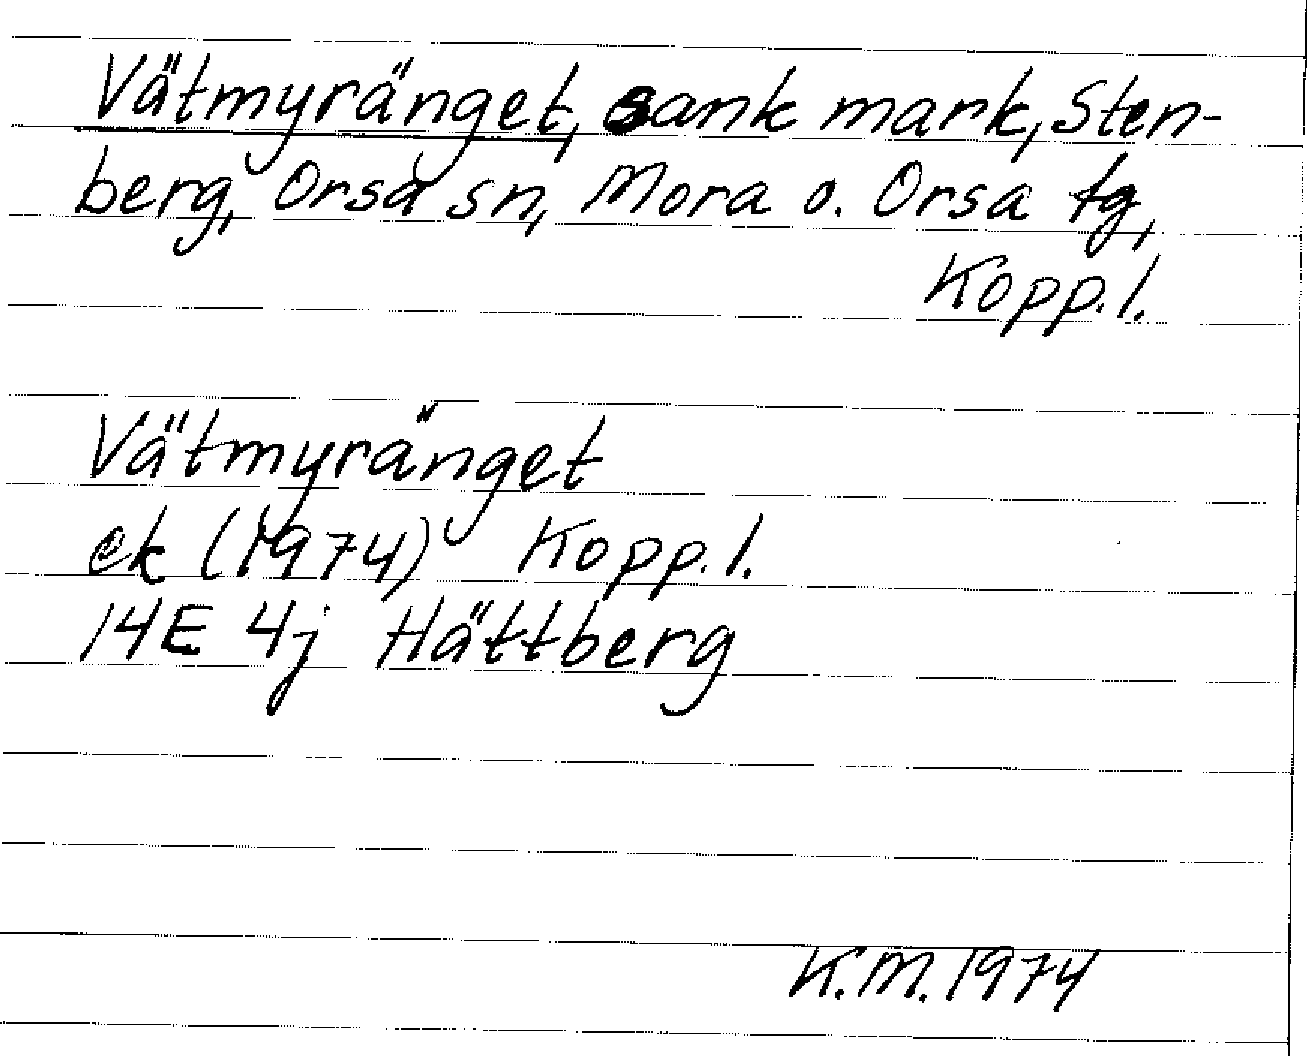 Vätmyränget, sank mark, Sten-
berg, Orsa sn, Mora o. Orsa tg,
Kopp. l.
Vätmyränget
ek (1974) Kopp. l.
14E 4j Hättberg
K.M. 1974